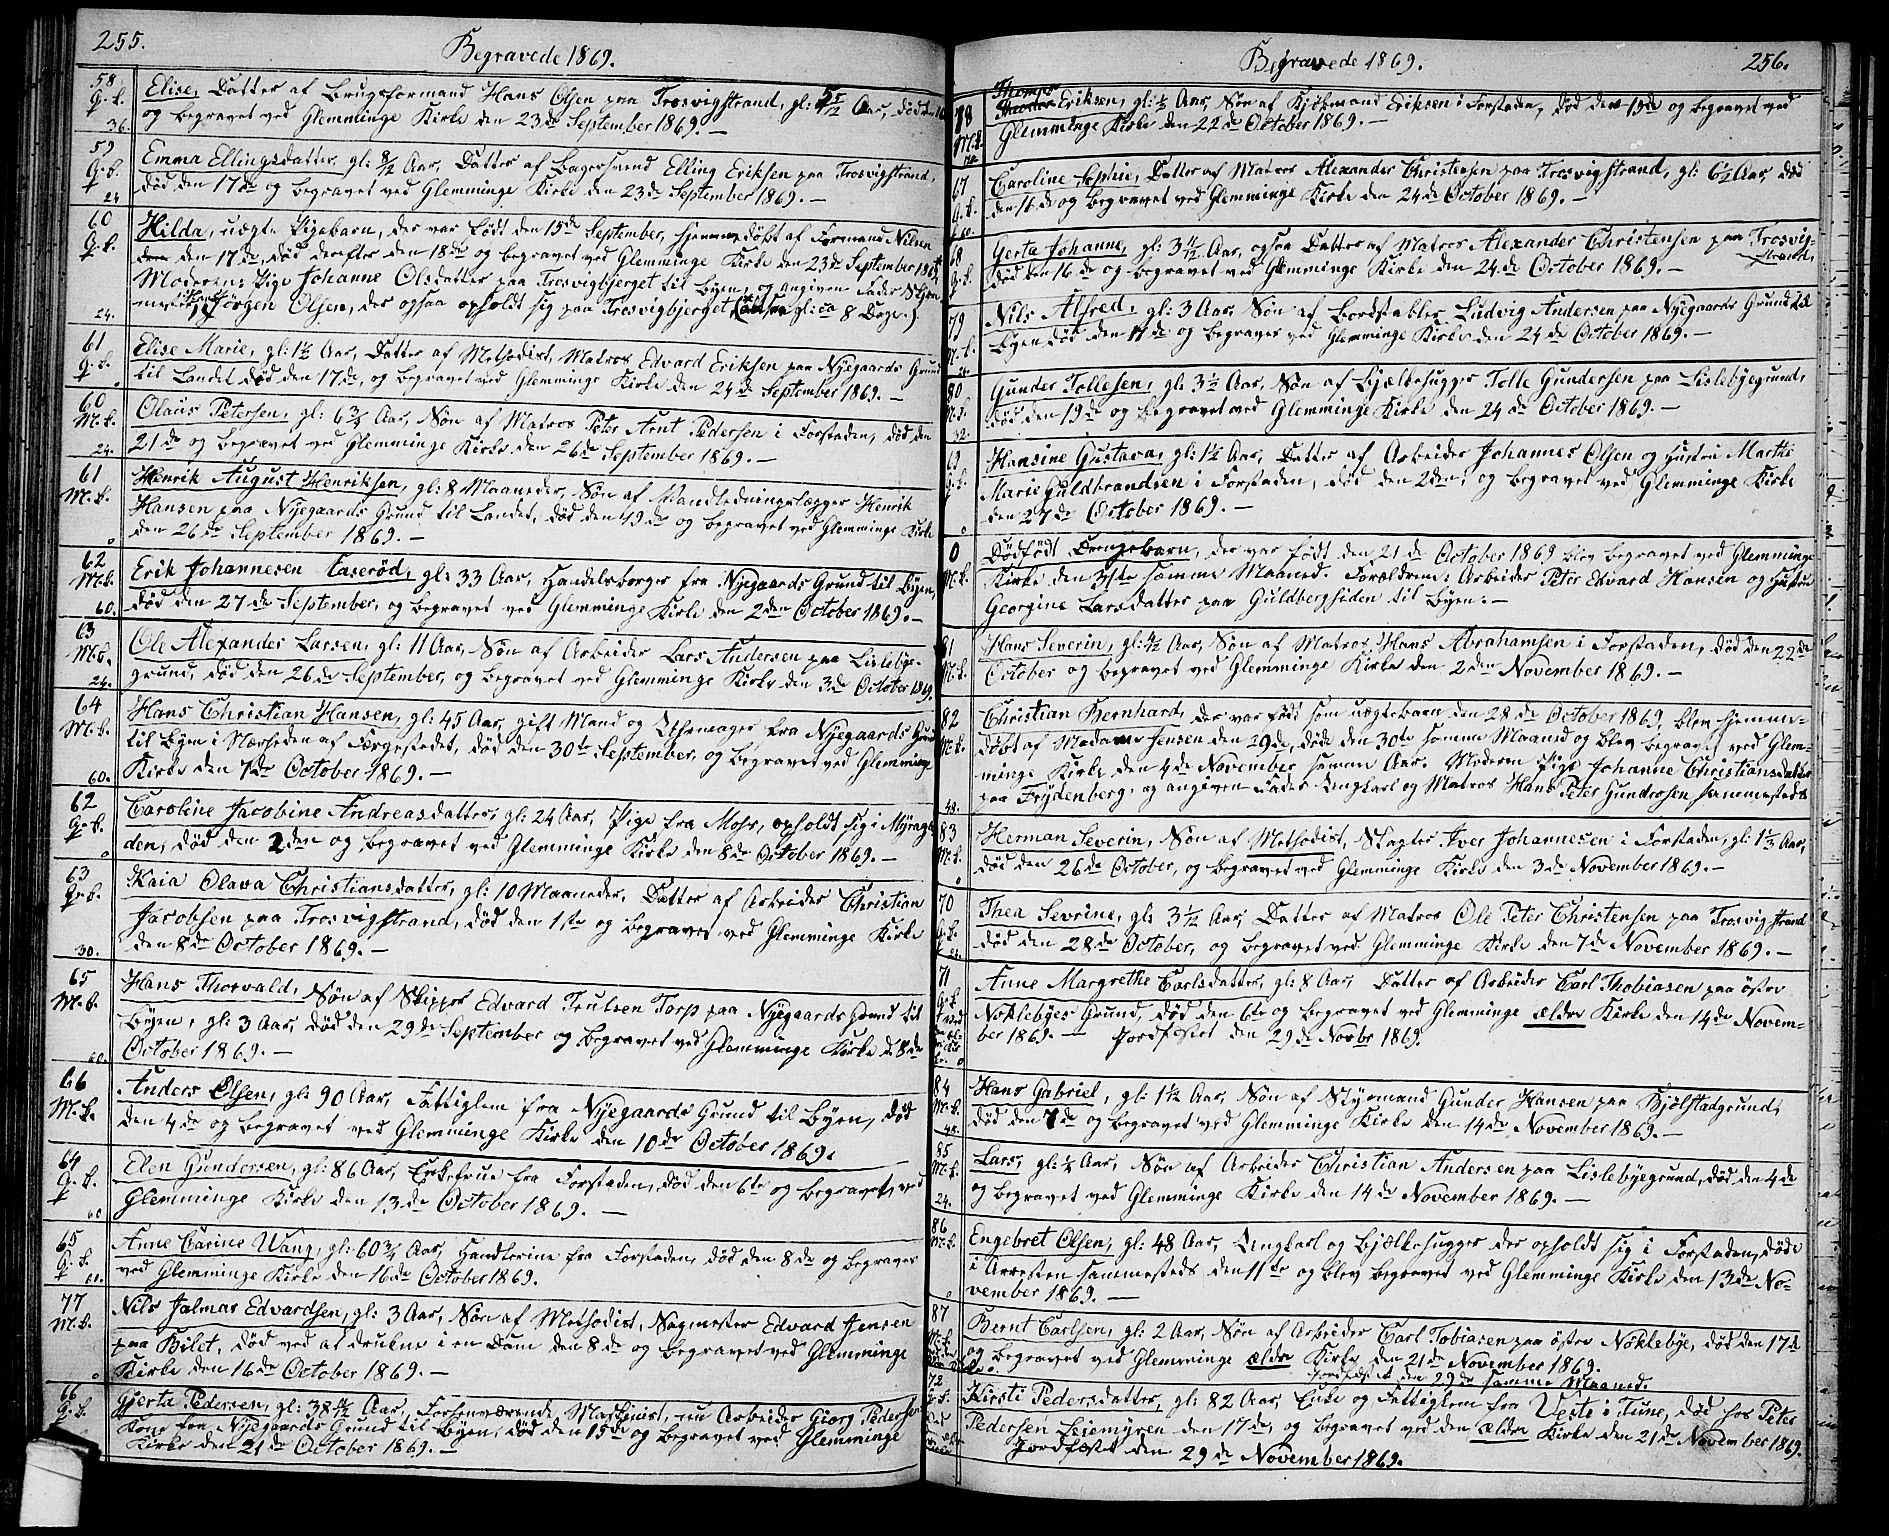 255.
Begravede 1869.
58
Q. k.
36.
Elise, Datter af Brugsformand Hans Olsen paa Trosvigstrand, gl: 5/12 Aar, død den
og begravet ved Glemminge Kirke den 23de September 1869. —
59
Q. k.
24
Emma Ellingsdatter, gl: 8/12 Aar, Datter af Bagersvend Elling Eriksen paa Trosvigstrand,
død den 17de og begravet ved Glemminge Kirke den 23de September 1869. —
60
Q. k.
24.
Hilda, uægte Pigebarn, der var født den 15de September, hjemmedøbt af Formand Nilsen
den 17de, død derefter den 18de og begravet ved Glemminge Kirke den 23de September
Moderen: Pige Johanne Olsdatter paa Trosvigbjerget til Byen, og angiven Fader
Jørgen Olsen, der ogsaa opholdt sig paa Trosvigbjerget, (altsaa gl: ca 8 Dage.)
61
Q. k.
Elise Marie, gl: 1½ Aar, Datter af Methodist, Matros Edvard Eriksen paa Nyegaards Grund
til Landet død den 17de, og begravet ved Glemminge Kirke den 24de September 1869. —
60
M. k.
24.
Olaüs Petersen, gl: 6¾ Aar, Søn af Matros Peter Arnt Pedersen i Forstaden, død den
21de og begravet ved Glemminge Kirke den 26de September 1869. —
61
M. k.
0
Henrik August Henriksen, gl: 8 Maaneder, Søn af Vandledningslægger Henrik
Hansen paa Nyegaards Grund til Landet, død den 19de og begravet ved Glemminge Kirke
den 26de September 1869. —
62
M. k.
60.
Erik Johannesen Taserød, gl: 33 Aar, Handelsborger fra Nyegaards Grund til Byen,
død den 27de September, og begravet ved Glemminge Kirke den 2den October 1869. —
63
M. k.
24.
Ole Alexander Larsen, gl: 11 Aar, Søn af Arbeider Lars Andersen paa Lislebye-
grund, død den 26de September, og begravet ved Glemminge Kirke den 3de October 1869.
64
M. k.
60.
Hans Christian Hansen, gl: 45 Aar, gift Mand og Uhrmager fra Nyegaards Grund
til Byen i Nærheden af Færgestedet, død den 30te September, og begravet ved Glemminge
Kirke den 7de October 1869. —
62
Q. k.
0
Caroline Jacobine Andreasdatter, gl: 24 Aar, Pige fra Moss, opholdt sig i Myrega-
den, død den 2den og begravet ved Glemminge Kirke den 8de October 1869. —
63
Q. k.
30.
Kaia Olava Christiansdatter, gl: 10 Maaneder, Datter af Arbeider Christian
Jacobsen paa Trosvigstrand, død den 1ste og begravet ved Glemminge Kirke
den 8de October 1869. —
65
M. k.
60.
Hans Thorvald, Søn af Skipper Edvard Trulsen Torp paa Nyegaards Grund til
Byen, gl: 3 Aar, død den 29de September og begravet ved Glemminge Kirke d. 8de
October 1869. —
66
M. k.
Anders Olsen, gl: 90 Aar, Fattiglem fra Nyegaards Grund til Byen, død
den 4de og begravet ved Glemminge Kirke den 10de October 1869.
64
Q. k.
60
Elen Gundersen, gl: 86 Aar, Enkefrue fra Forstaden, død den 6te og begravet ved
Glemminge Kirke den 13de October 1869. —
65
Q. k.
60.
Anne Carine Wang, gl: 60¾ Aar, Handlerine fra Forstaden, død den 8de og begravet
ved Glemminge Kirke den 16de October 1869.
77
M. k.
0
Nils Jalmar Edvardsen, gl: 3 Aar, Søn af Methodist, Sagmester Edvard Jensen
paa Bilet, død ved at drukne i en Dam den 8de og begravet ved Glemminge
Kirke den 16de October 1869. —
66
Q. k.
Gjerta Pedersen, gl: 38 Aar, Forhenværende Maskinist, nu Arbeider Georg Pedersens
Kone fra Nyegaards Grund til Byen, død den 15de og begravet ved Glemminge
Kirke den 21de October 1869. —
256.
Begravede 1869.
78
M. k.
Theodor Eriksen, gl: ½ Aar, Søn af Kjøbmand Eriksen i Forstaden, død den 15de og begravet ved
Glemminge Kirke den 22de October 1869. —
67
Q. k.
60
Caroline Sophie, Datter af Matros Alexander Christensen paa Trosvigstrand, gl: 6½ Aar, død
den 16de og begravet ved Glemminge Kirke den 24de October 1869. —
68
Q. k.
Gerta Johanne, gl: 3 11/12 Aar, ogsaa Datter af Matros Alexander Christensen paa Trosvig-
strand,
død den 16de og begravet ved Glemminge Kirke den 24de October 1869. —
79
M. k.
Nils Alfred, gl: 3 Aar, Søn af Bordstabler Ludvig Andersen paa Nyegaards Grund til
Byen død den 17de og begravet ved Glemminge Kirke den 24de October 1869. —
80
M. k.
32.
Gunder Tollesen, gl: 3½ Aar, Søn af Bjælkehugger Tolle Gundersen paa Lislebyegrund,
død den 19de og begravet ved Glemminge Kirke den 24de October 1869. —
69
Q. k.
0
Hansine Gustava, gl: 1½ Aar, Datter af Arbeider Johannes Olsen og Hustru Marthe
Marie Guldbrandsen i Forstaden, død den 2den, og begravet ved Glemminge Kirke
den 27de October 1869. —
0
M. k.
Dødfødt Drengebarn, der var født den 21de October 1869 blev begravet ved Glemminge
Kirke den 31ste samme Maaned. Forældrene: Arbeider Peter Edvard Hansen og Hustru
Georgine Larsdatter paa Guldbergsiden til Byen. —
81
M. k.
Hans Severin, gl: 4/12 Aar, Søn af Matros Hans Abrahamsen i Forstaden, død den 22de
October og begravet ved Glemminge Kirke den 2den November 1869. —
82
M. k.
48.
Christian Bernhard, der var født som uægtebarn den 28de October 1869, blev hjemme-
døbt af Madame Jensen den 29de, døde den 30te samme Maaned og blev begravet ved Glem-
minge Kirke den 4de November samme Aar. Moderen Pige Johanne Christiansdatter
paa Frydenberg, og angiven Fader Ungkarl og Matros Hans Peter Gundrosen sammesteds
83
M. k.
0
Herman Severin, Søn af Methodist, Slagter Iver Johannesen i Forstaden, gl: 1⅓ Aar,
død den 26de October, og begravet ved Glemminge Kirke den 3de November 1869. —
70
Q. k.
24.
Thea Sevrine, gl: 3 1/12 Aar, Datter af Matros Ole Peter Christensen paa Trosvigstrand
død den 28de October, og begravet ved Glemminge Kirke den 7de November 1869. —
71
Q. k.
Anne Margrethe Carlsdatter, gl: 8 Aar, Datter af Arbeider Carl Thobiasen paa østre
Noklebyes Grund, død den 6te og begravet ved Glemminge ældre Kirke den 14de Novem-
ber 1869. — Jordfæstet den 29de Novbr 1869.
84
M. k.
48.
Hans Gabriel, gl: 1½ Aar, Søn af Styrmand Gunder Hansen paa Bjølstadgrund,
død den 7de og begravet ved Glemminge Kirke den 14de November 1869. —
85
M. k.
24.
Lars, gl: ¼ Aar, Søn af Arbeider Christian Andersen paa Lislebyegrund, død den 4de
og begravet ved Glemminge Kirke den 14de November 1869. —
86
M. k.
0
Engebret Olsen, gl: 48 Aar, Ungkarl og Bjælkehugger der opholdt sig i Forstaden, døde
i Arresten sammesteds den 11te og blev begravet ved Glemminge Kirke den 13de No-
vember 1869. —
87
M. k.
Bernt Carlsen, gl: 2 Aar, Søn af Arbeider Carl Tobiasen paa østre Nøklebye, død den 17de
og begravet ved Glemminge ældre Kirke den 21de November 1869.
Jordfæstet den 29de samme Maaned.
72
Q. k.
Kirsti Pedersdatter, gl: 82 Aar, Enke og Fattiglem fra Veste i Tune, død hos Peter
Pedersen Leiemyren den 17de, og begravet ved den ældre Kirke den 21de November 1869.
Jordfæstet den 29de November 1869.